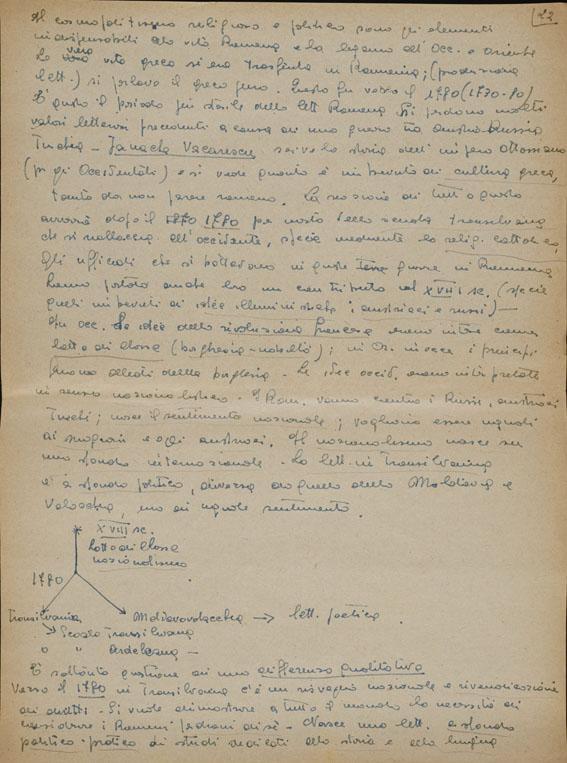 22
Il cosmopolitismo religioso e politico sono gli elementi
indispensabili alla vita Romena e la legano all'Occ. e Oriente
La vera vita greca si era trasferita in Romania; (produzione
lett.) si parlava il greco puro. Questo fu verso il 1780 (1730-80)
E' questo il periodo più sterile della lett Romena. Si perdono molti
valori letterari precedenti a causa di una guerra tra Austria-Russia
Turchia - Janache Vacarescu scrive la storia dell'impero Ottomano
(per gli Occidentali) e si vede quanto è imbevuto di cultura greca,
tanto da non parere romeno. La reazione di tutto questo
avverrà dopo il 1780 per mezzo della scuola transilvana
che si riallaccia all'occidente, specie mediante la relig. cattolica,
Gli ufficiali che si battevano in queste guerre in Rumenia
hanno portato anche loro un contributo nel XVIII sc. (specie
quelli imbevuti di idee illuministiche; austriaci e russi) -
In occ. Le idee della rivoluzione francese erano intese come
lotta di classe (borghesia-nobiltà); in Or. invece i principi
furono alleati della borghesia - Le idee occid. erano interpretate
in senso nazionalistico - I Rom. vanno contro i Russi, austriaci
Turchi; nasce il sentimento nazionale; vogliono essere uguali
ai magiari e agli austriaci. Il nazionalismo nasce su
uno sfondo internazionale. La lett. in Transilvania
è a sfondo politico, diversa da quella della Moldavia e
Valacchia, ma di uguale sentimento.
XVIII sc.
Lotta di classe
nazionalismo
1780
Transilvania Moldavovalacchia → lett. poetica.
→ Scuola Transilvana
o " Ardeleana -
E' soltanto questione di una differenza qualitativa
Verso il 1780 in Transilvania c'è un risveglio nazionale e rivendicazione
dei diritti - Si vuole dimostrare a tutto il mondo la necessità di
considerare i Rumeni padroni di sè - Nasce una lett. a sfondo
politico-pratico di studi dedicati alla storia e alla lingua